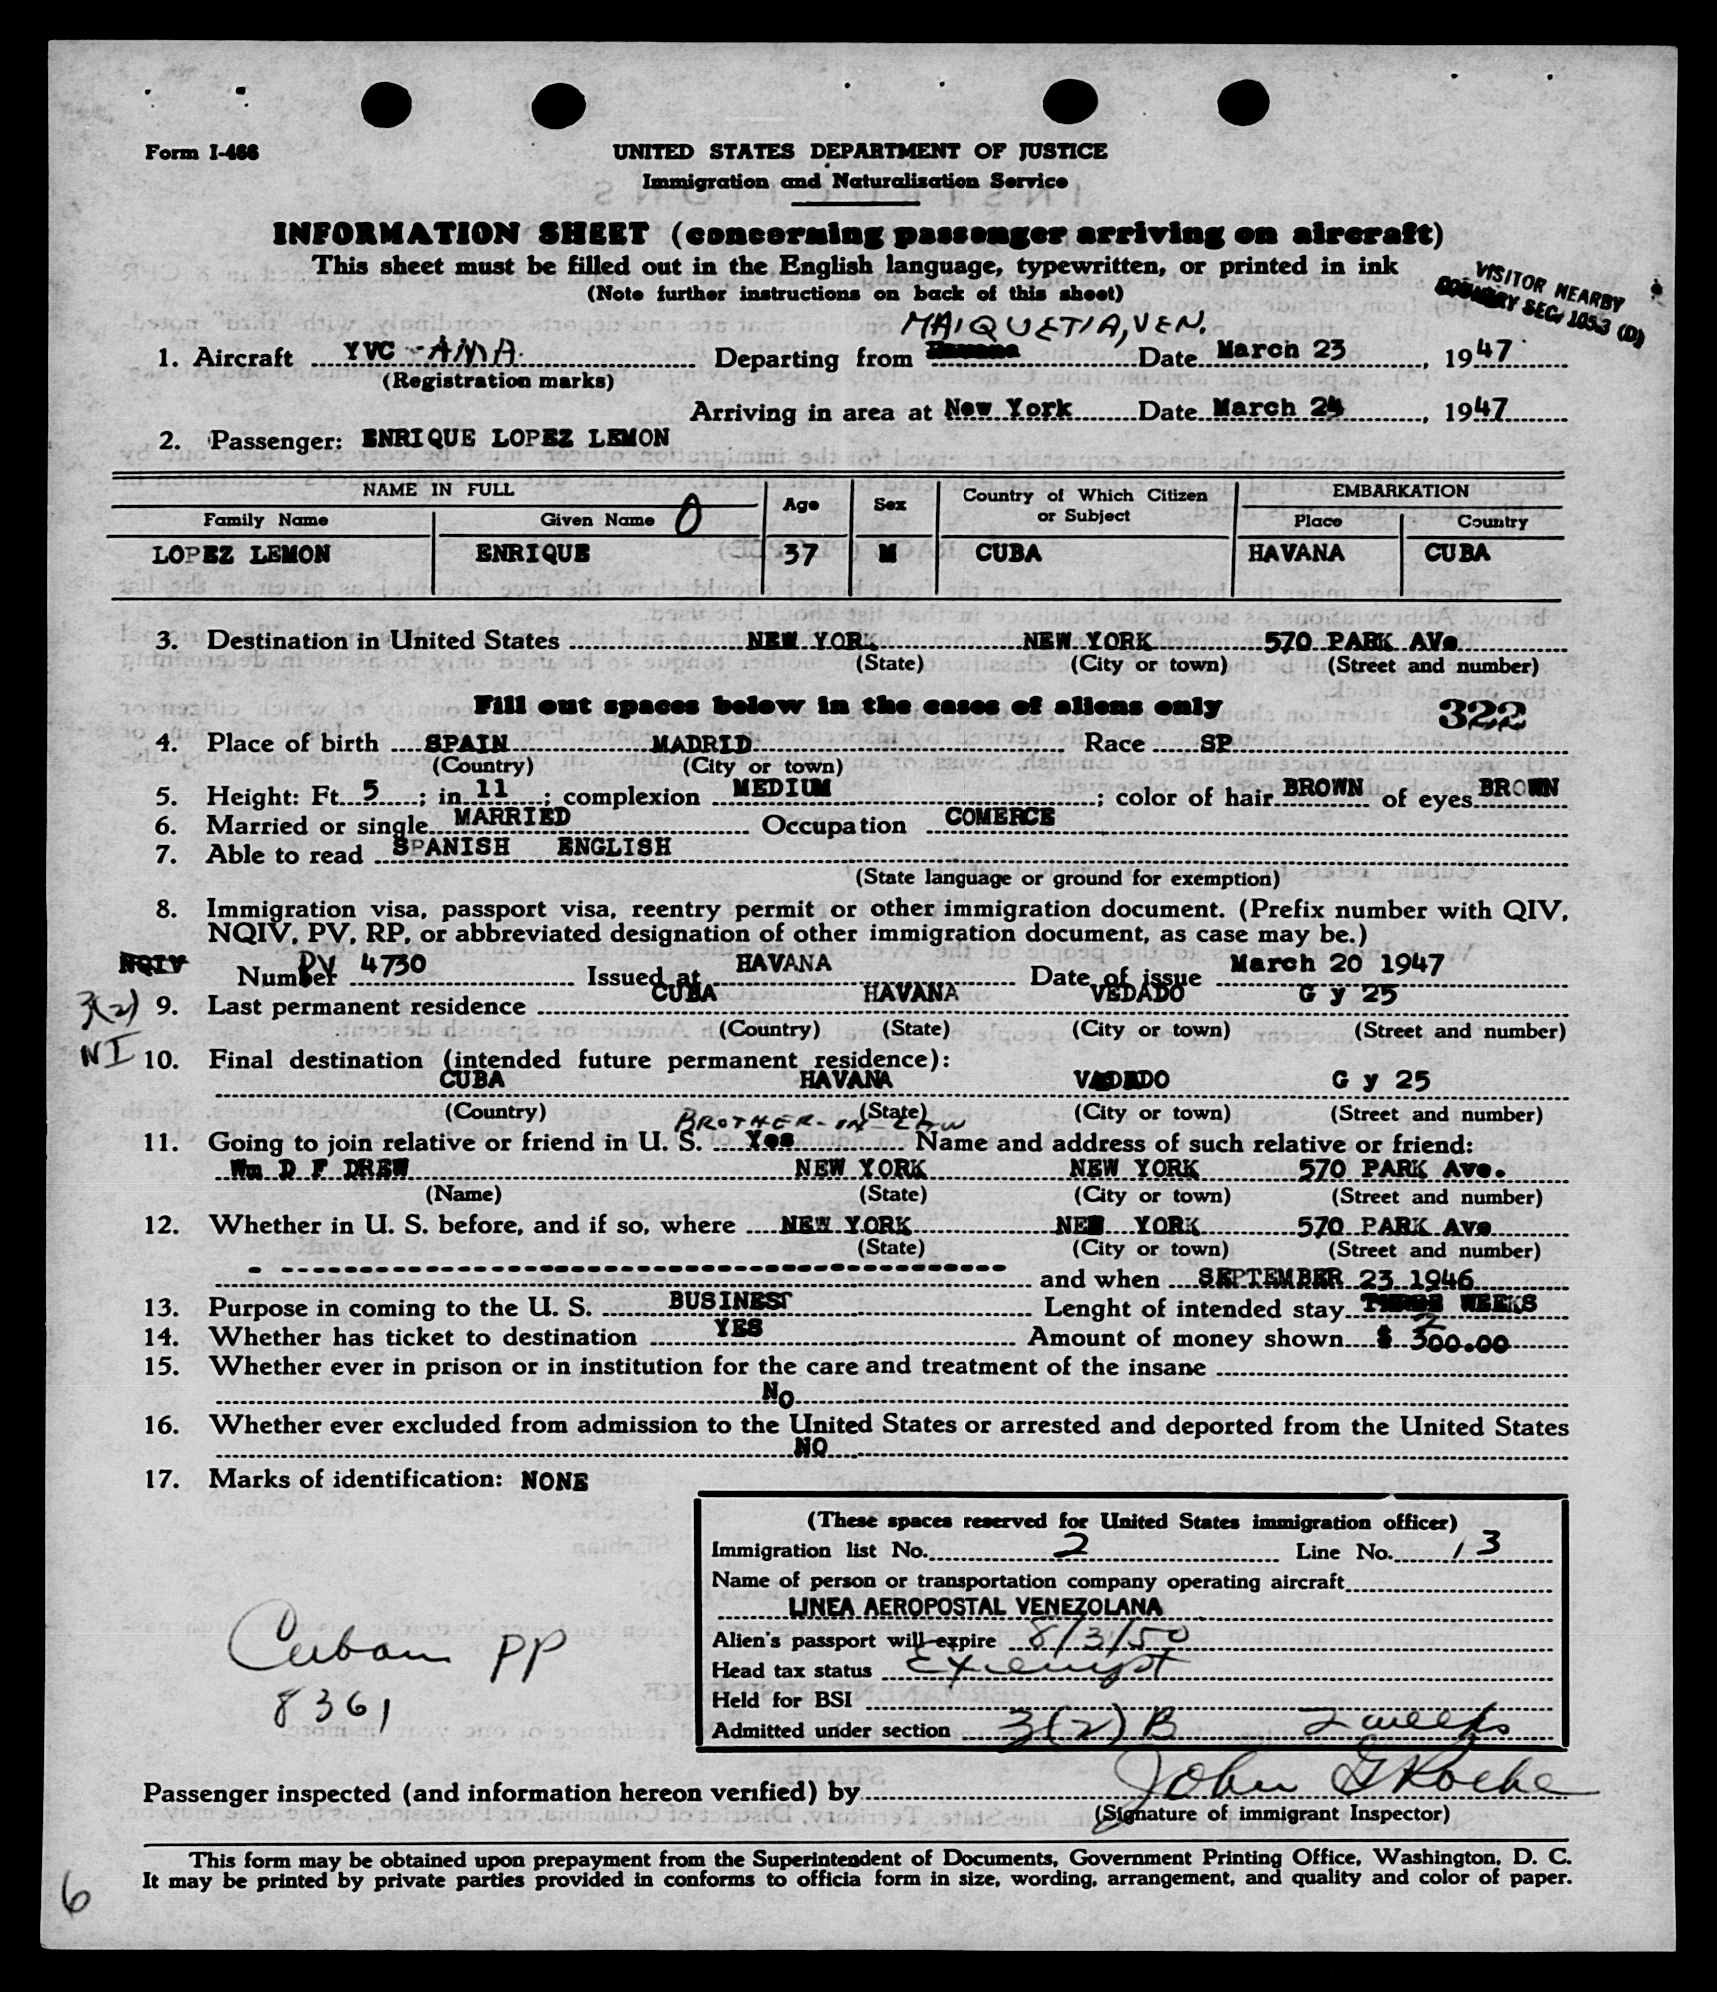 Form I-466
UNITED STATES DEPARTMENT OF JUSTICE
Immigration and Naturalization Service
INFORMATION SHEET (concerning passenger arriving on aircraft)
This sheet must be filled out in the English language, typewritten, or printed in ink
(Note further instructions on back of this sheet)
VISITOR NEARBY
COUNTRY SEC. 105.3 (D)
MAIQUETIA, VEN.
1. Aircraft YVC - AMA. Departing from Havana Date March 23, 1947
(Registration marks)
Arriving in area at New York Date March 24, 1947
2. Passenger: ENRIQUE LOPEZ LEMON
NAME IN FULL Age Sex Country of Which Citizen or Subject EMBARKATION
Family Name Given Name 0 Place Country
LOPEZ LEMON ENRIQUE 37 M CUBA HAVANA CUBA
3. Destination in United States NEW YORK NEW YORK 570 PARK AVe
(State) (City or town) (Street and number)
Fill out spaces below in the cases of aliens only 322
4. Place of birth SPAIN MADRID Race SP
(Country) (City or town)
5. Height: Ft. 5; in. 11; complexion MEDIUM; color of hair BROWN of eyes BROWN
6. Married or single MARRIED Occupation COMERCE
7. Able to read SPANISH ENGLISH
(State language or ground for exemption)
8. Immigration visa, passport visa, reentry permit or other immigration document. (Prefix number with QIV,
NQIV, PV, RP, or abbreviated designation of other immigration document, as case may be.)
NQIV Number PV 4730 Issued at HAVANA Date of issue March 20 1947
3(2) 9. Last permanent residence CUBA HAVANA VEDADO G y 25
(Country) (State) (City or town) (Street and number)
NI 10. Final destination (intended future permanent residence):
CUBA HAVANA VADADO G y 25
(Country) (State) (City or town) (Street and number)
BROTHER-IN-LAW
11. Going to join relative or friend in U. S. Yes Name and address of such relative or friend:
Wm D F DREW NEW YORK NEW YORK 570 PARK Ave.
(Name) (State) (City or town) (Street and number)
12. Whether in U. S. before, and if so, where NEW YORK NEW YORK 570 PARK Ave
(State) (City or town) (Street and number)
and when SEPTEMBER 23 1946
13. Purpose in coming to the U. S. BUSINEST Lenght of intended stay THREE WEEKS
2
14. Whether has ticket to destination YES Amount of money shown $ 300.00
15. Whether ever in prison or in institution for the care and treatment of the insane
NO
16. Whether ever excluded from admission to the United States or arrested and deported from the United States
NO
17. Marks of identification: NONE
(These spaces reserved for United States immigration officer)
Immigration list No. 2 Line No. 13
Name of person or transportation company operating aircraft
LINEA AEROPOSTAL VENEZOLANA
Alien's passport will expire 8/3/50
Head tax status Exempt
Held for BSI
Admitted under section 3(2) B 2 weeks
Cuban PP
8361
John G Roche
Passenger inspected (and information hereon verified) by
(Signature of immigrant Inspector)
This form may be obtained upon prepayment from the Superintendent of Documents, Government Printing Office, Washington, D. C.
It may be printed by private parties provided in conforms to officia form in size, wording, arrangement, and quality and color of paper.
6